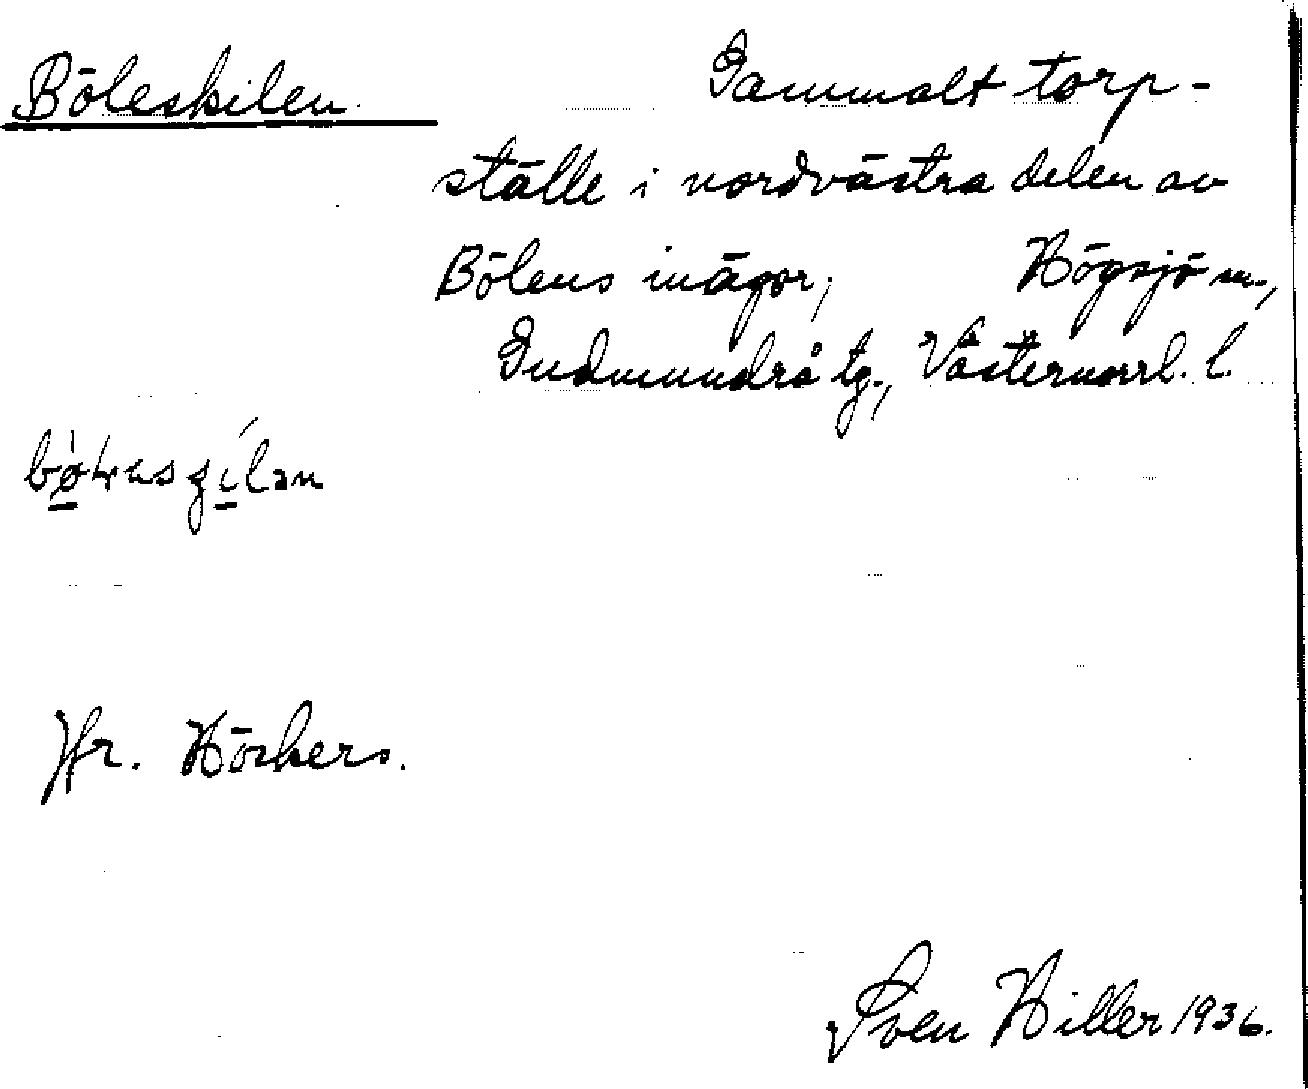 Böleskilen. Gammalt torp-
ställe i nordvästra delen av
Bölens inägor; Högsjö sn.,
Gudmundrå tg., Västernorrl. l.
Hr. Hörkers.
Sven Hiller 1936.